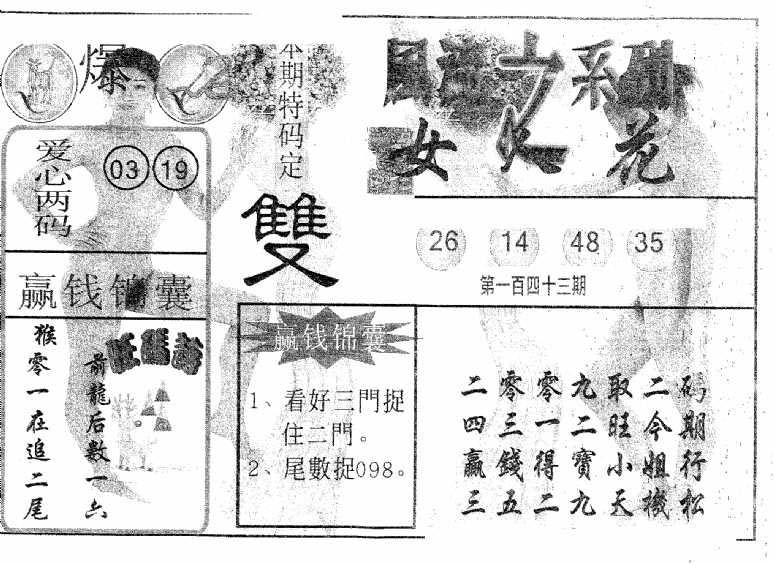 爆
本期特码定
雙
系列
女 花
爱心两码
03 19
26 14 48 35
第一百四十三期
赢钱锦囊
赢钱锦囊
1、看好三門捉
住二門。
2、尾數捉098。
猴零一在追二尾
前龍后数一六
二零零九取二码
四三一二旺今期
赢錢得寶小姐行
三五二九天機松